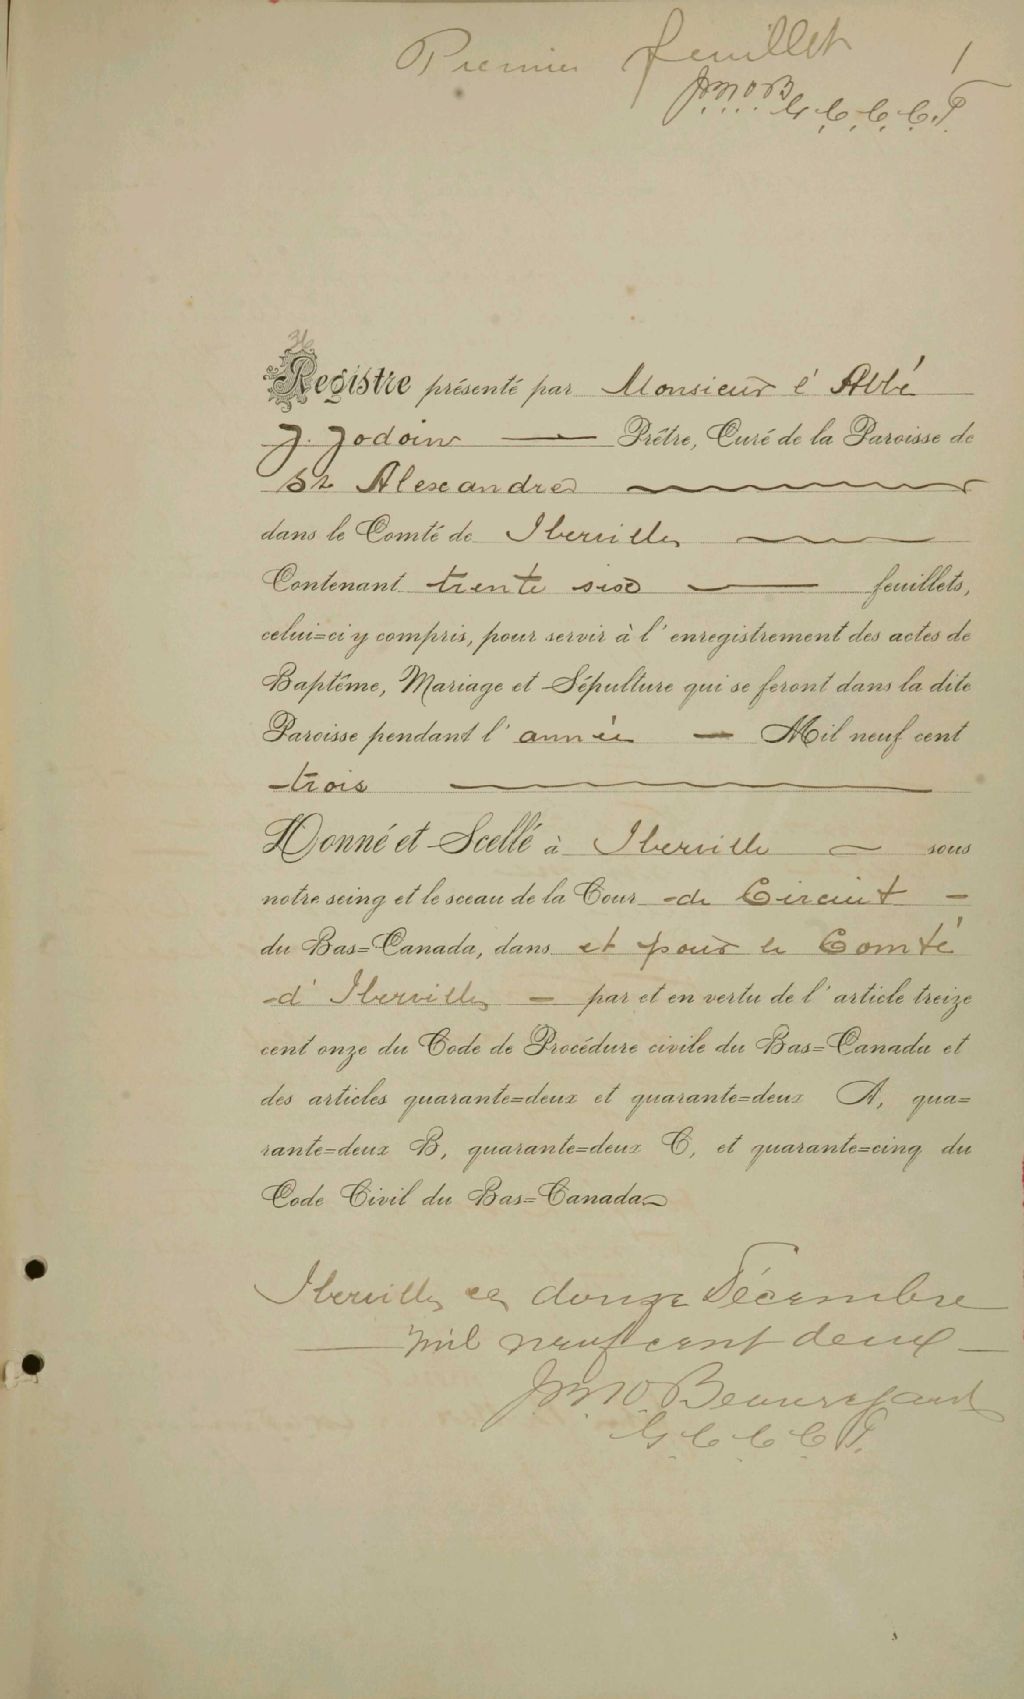 Premier feuillet 1
J.M.O.B. G.C.C.C.I.
36
Registre présenté par Monsieur l'Abbé
J. Jodoin Prêtre, Curé de la Paroisse de
St Alexandre
dans le Comté de Iberville
Contenant trente six feuillets,
celui=ci y compris, pour servir à l'enregistrement des actes de
Baptême, Mariage et Sépulture qui se feront dans la dite
Paroisse pendant l'année Mil neuf cent
trois
Donné et Scellé à Iberville sous
notre seing et le sceau de la Cour de Circuit
du Bas=Canada, dans et pour le Comté
d'Iberville par et en vertu de l'article treize
cent onze du Code de Procédure civile du Bas=Canada et
des articles quarante=deux et quarante=deux A, qua=
rante=deux B, quarante=deux C, et quarante=cinq du
Code Civil du Bas=Canada
Iberville ce douze Décembre
mil neuf cent deux
J.M.O. Beauregard
G.C.C.C.I.